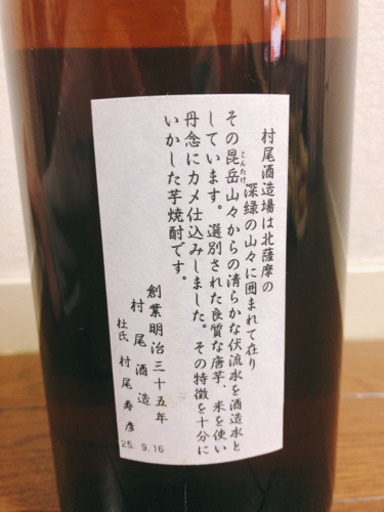 村尾酒造場は北薩摩の
深緑の山々に囲まれて在り
その昆岳山々からの清らかな伏流水を酒造水と
こんたけ
しています。選別された良質な唐芋、米を使い
丹念にカメ仕込みしました。その特徴を十分に
いかした芋焼酎です。
創業明治三十五年
村尾酒造
杜氏 村尾寿彦
25. 9.16